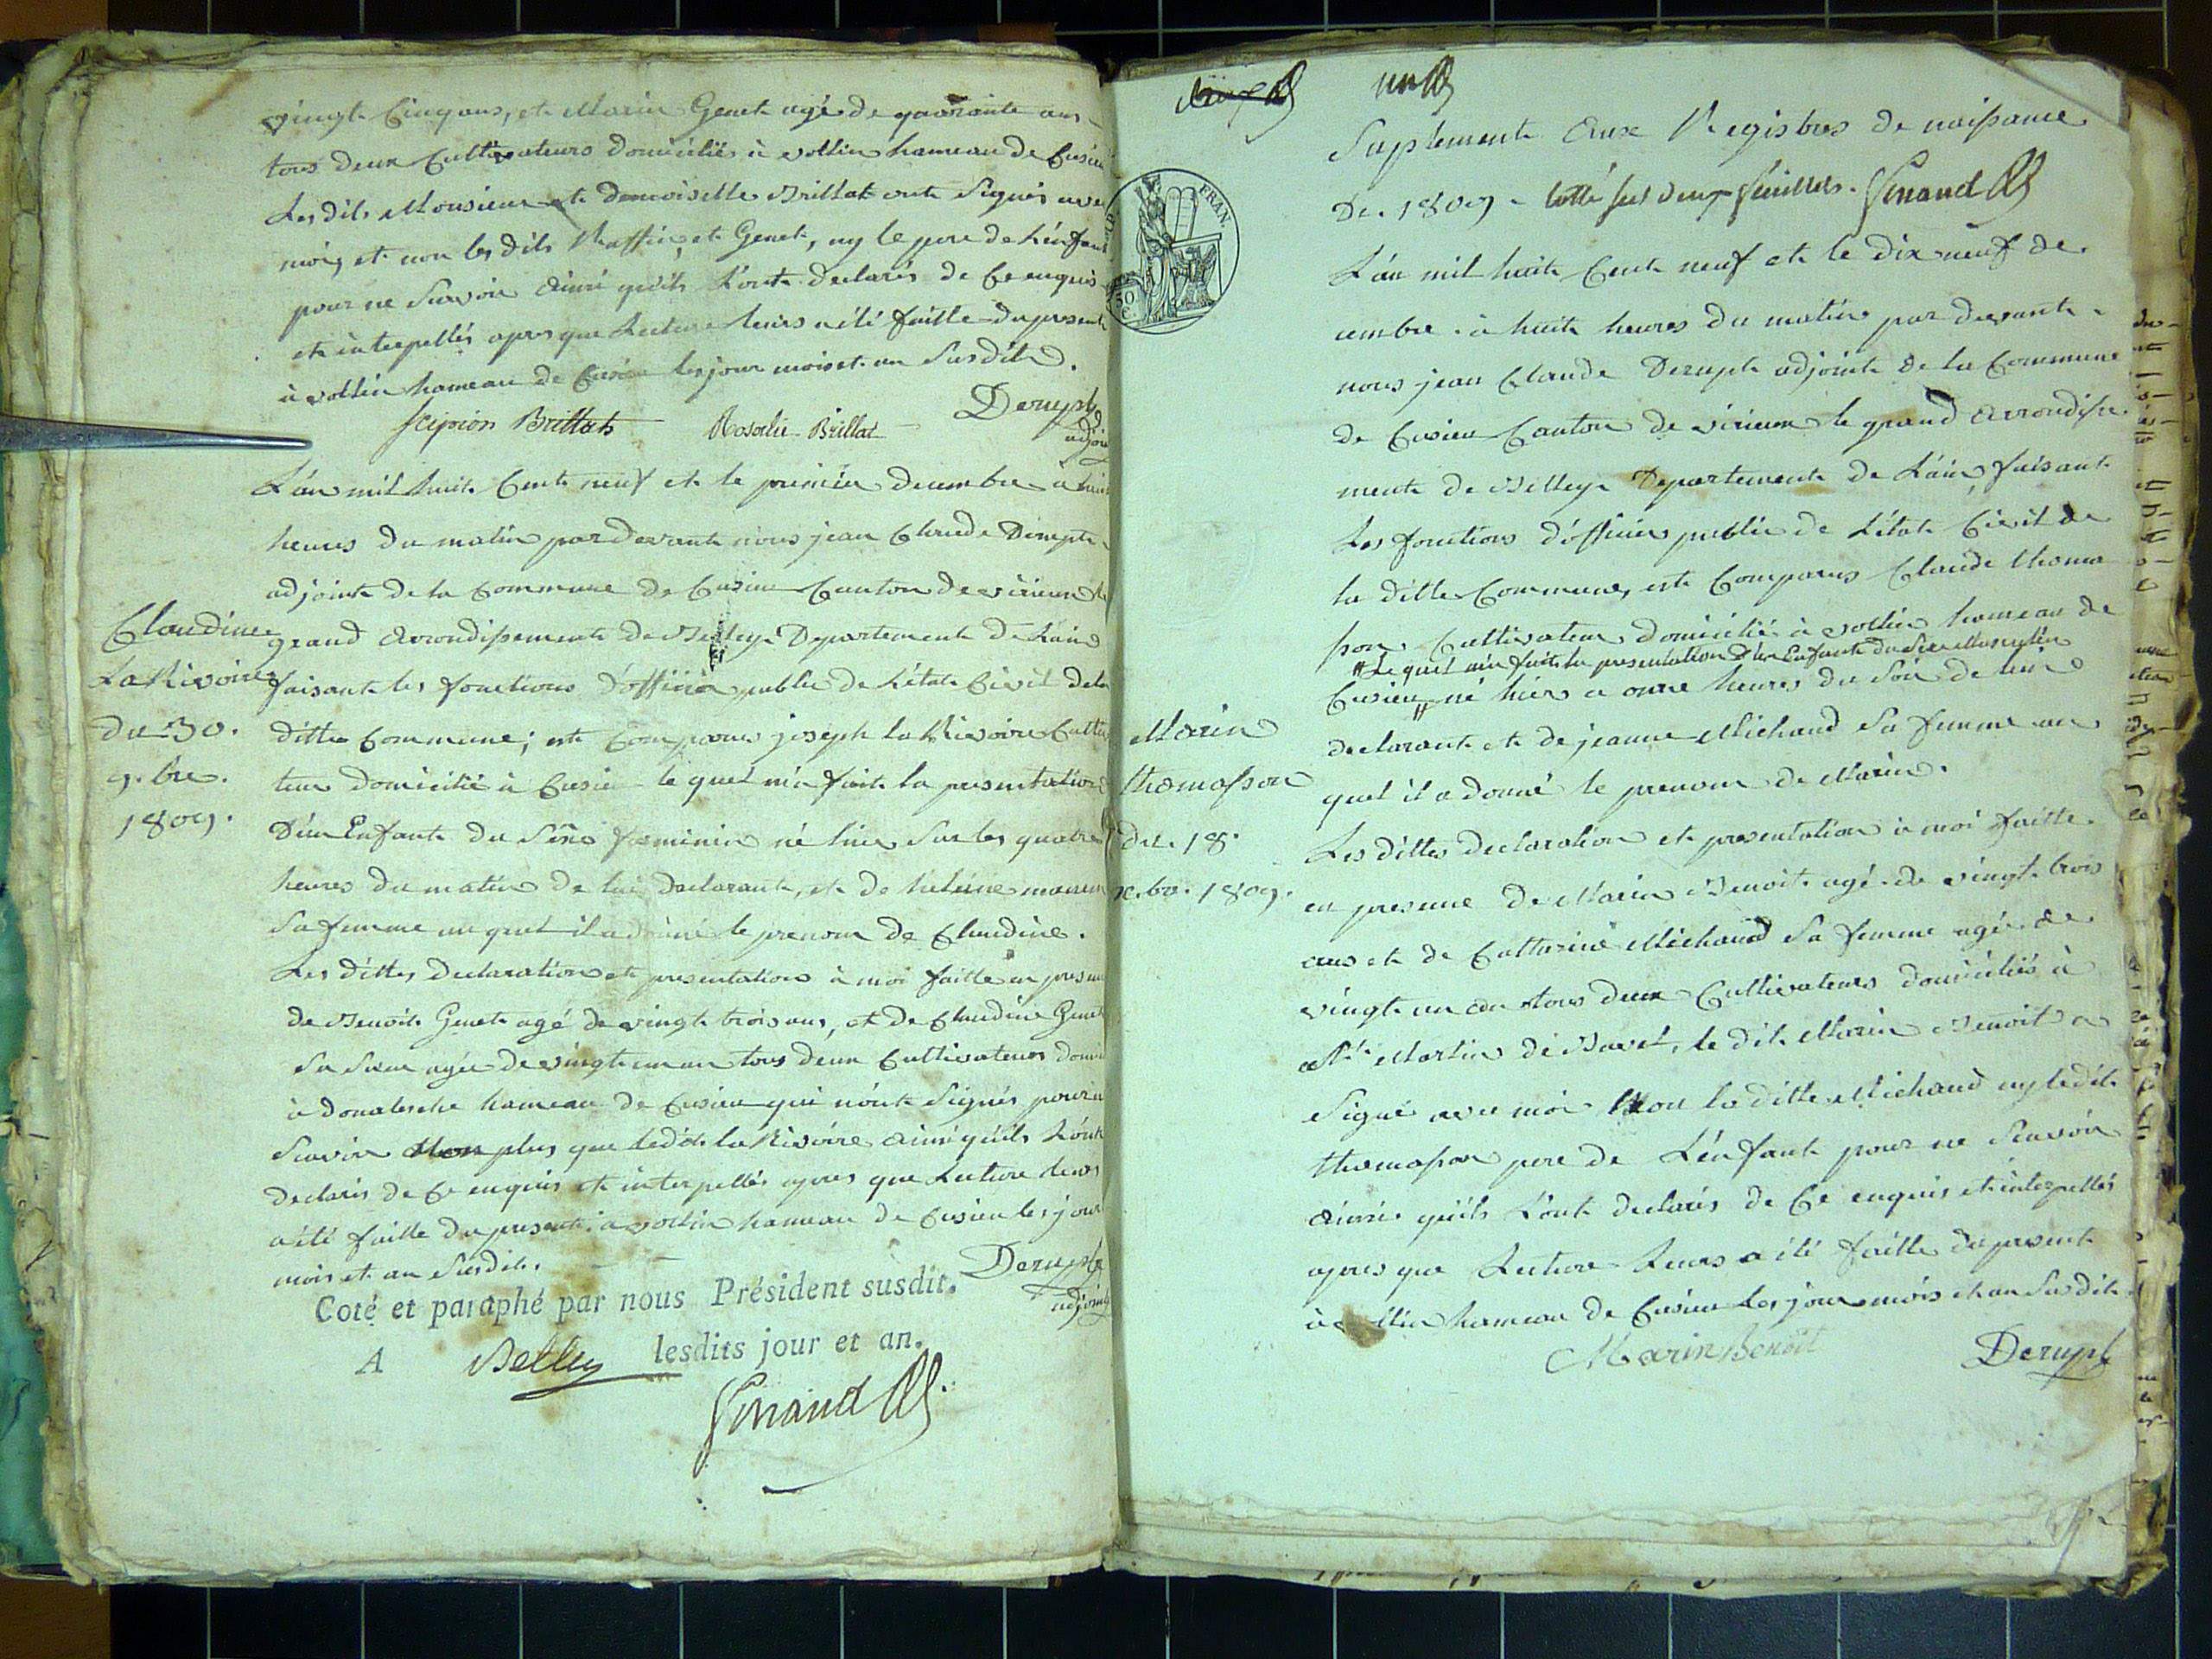 vingt Cinq ans, et Marin Genet agé de quarante ans
tous deux Cultivateurs domiciliés à vollin hameau de Cusieu
Les dits Monsieur et demoiselle Brillat ont Signés avec
moi, et non les dits et Genet, ny le pere de L'énfant
pour ne Scavoir ainsi quils L'ont declarés de Ce enquis
et interpellés apres que Lecture leurs a été faitte du present
à vollin hameau de Cusieu les jour mois et an Susdits.
Scipion Brillat Rosalie Brillat Derupt
adjoint
L'an mil huit Cent neuf et le premier decembre à huit
heures du matin pardevant nous jean Claude Derupt
adjoint de la Commune de Cusieu Canton de virieux le
grand Arrondissement de Belley Departement de L'ain
faisant les fonctions d'officier public de L'état Civil de la
ditte Commune; est Comparus joseph la Rivoire Cultiva
teur domicilié à Cusieu le quel m'a fait la presentation
D'un Enfant du Sexe feminin né hier Sur les quatre
heures du matin de lui declarant, et de heleine
Sa femme au quel il a donné le prenom de Claudine.
Les dittes declaration et presentation à moi faitte en presence
de Benoit Genet agé de vingt trois ans, et de Claudine Genet
Sa Soeur agée de vingt un an tous deux Cultivateurs domicilié
à hameau de Cusieu qui n'ont Signés pour ne
Scavoir Non plus que ledit la Rivoire ainsi quils L'ont
declarés de Ce enquis et interpellés apres que Lecture leurs
a été faitte du present à vollin hameau de Cusieu les jour
mois et an Susdits.
Derupt
adjoint
Claudine
La Rivoire
du 30.
9.bre.
1809.
Coté et paraphé par nous Président susdit.
A Belley lesdits jour et an.
un
Suplement Aux Registres de naissance
De 1809 Cotté sur deux feuillets.
L'an mil huit Cent neuf et le dix neuf de
cembre à huit heures du matin par devant
nous jean Claude Derupt adjoint de la Commune
de Cusieu Canton de virieux le grand Arrondisse
ment de Belley Departement de L'ain, faisant
Les fonctions d'officier public de L'état Civil de
la ditte Commune, est Comparus Claude thomas
son Cultivateur domicilié à vollin hameau de
// Le quel m'a fait la presentation d'un Enfant du Sexe Masculin
Cusieu // né hier à onze heures du Soir de lui
declarant et de jeanne Michaud Sa femme au
quel il a donné le prenom de Marin.
Les dittes declaration et presentation à moi faitte
en presence de Marin Benoit agé de vingt trois
ans et de Catherine Michaud Sa femme agée de
vingt un an tous deux Cultivateurs domiciliés à
St. Martin de Bavel, le dit Marin Benoit a
Signé avec moi Non la ditte Michaud ny ledit
thomasson pere de L'énfant pour ne Scavoir
ainsi quils L'ont declarés de Ce enquis et interpellés
apres que Lecture Leurs a été faitte du present
à vollin hameau de Cusieu les jour mois et an Susdits.
Marin Benoit Derupt
Marin
thomasson
du 18
x.bre. 1809.